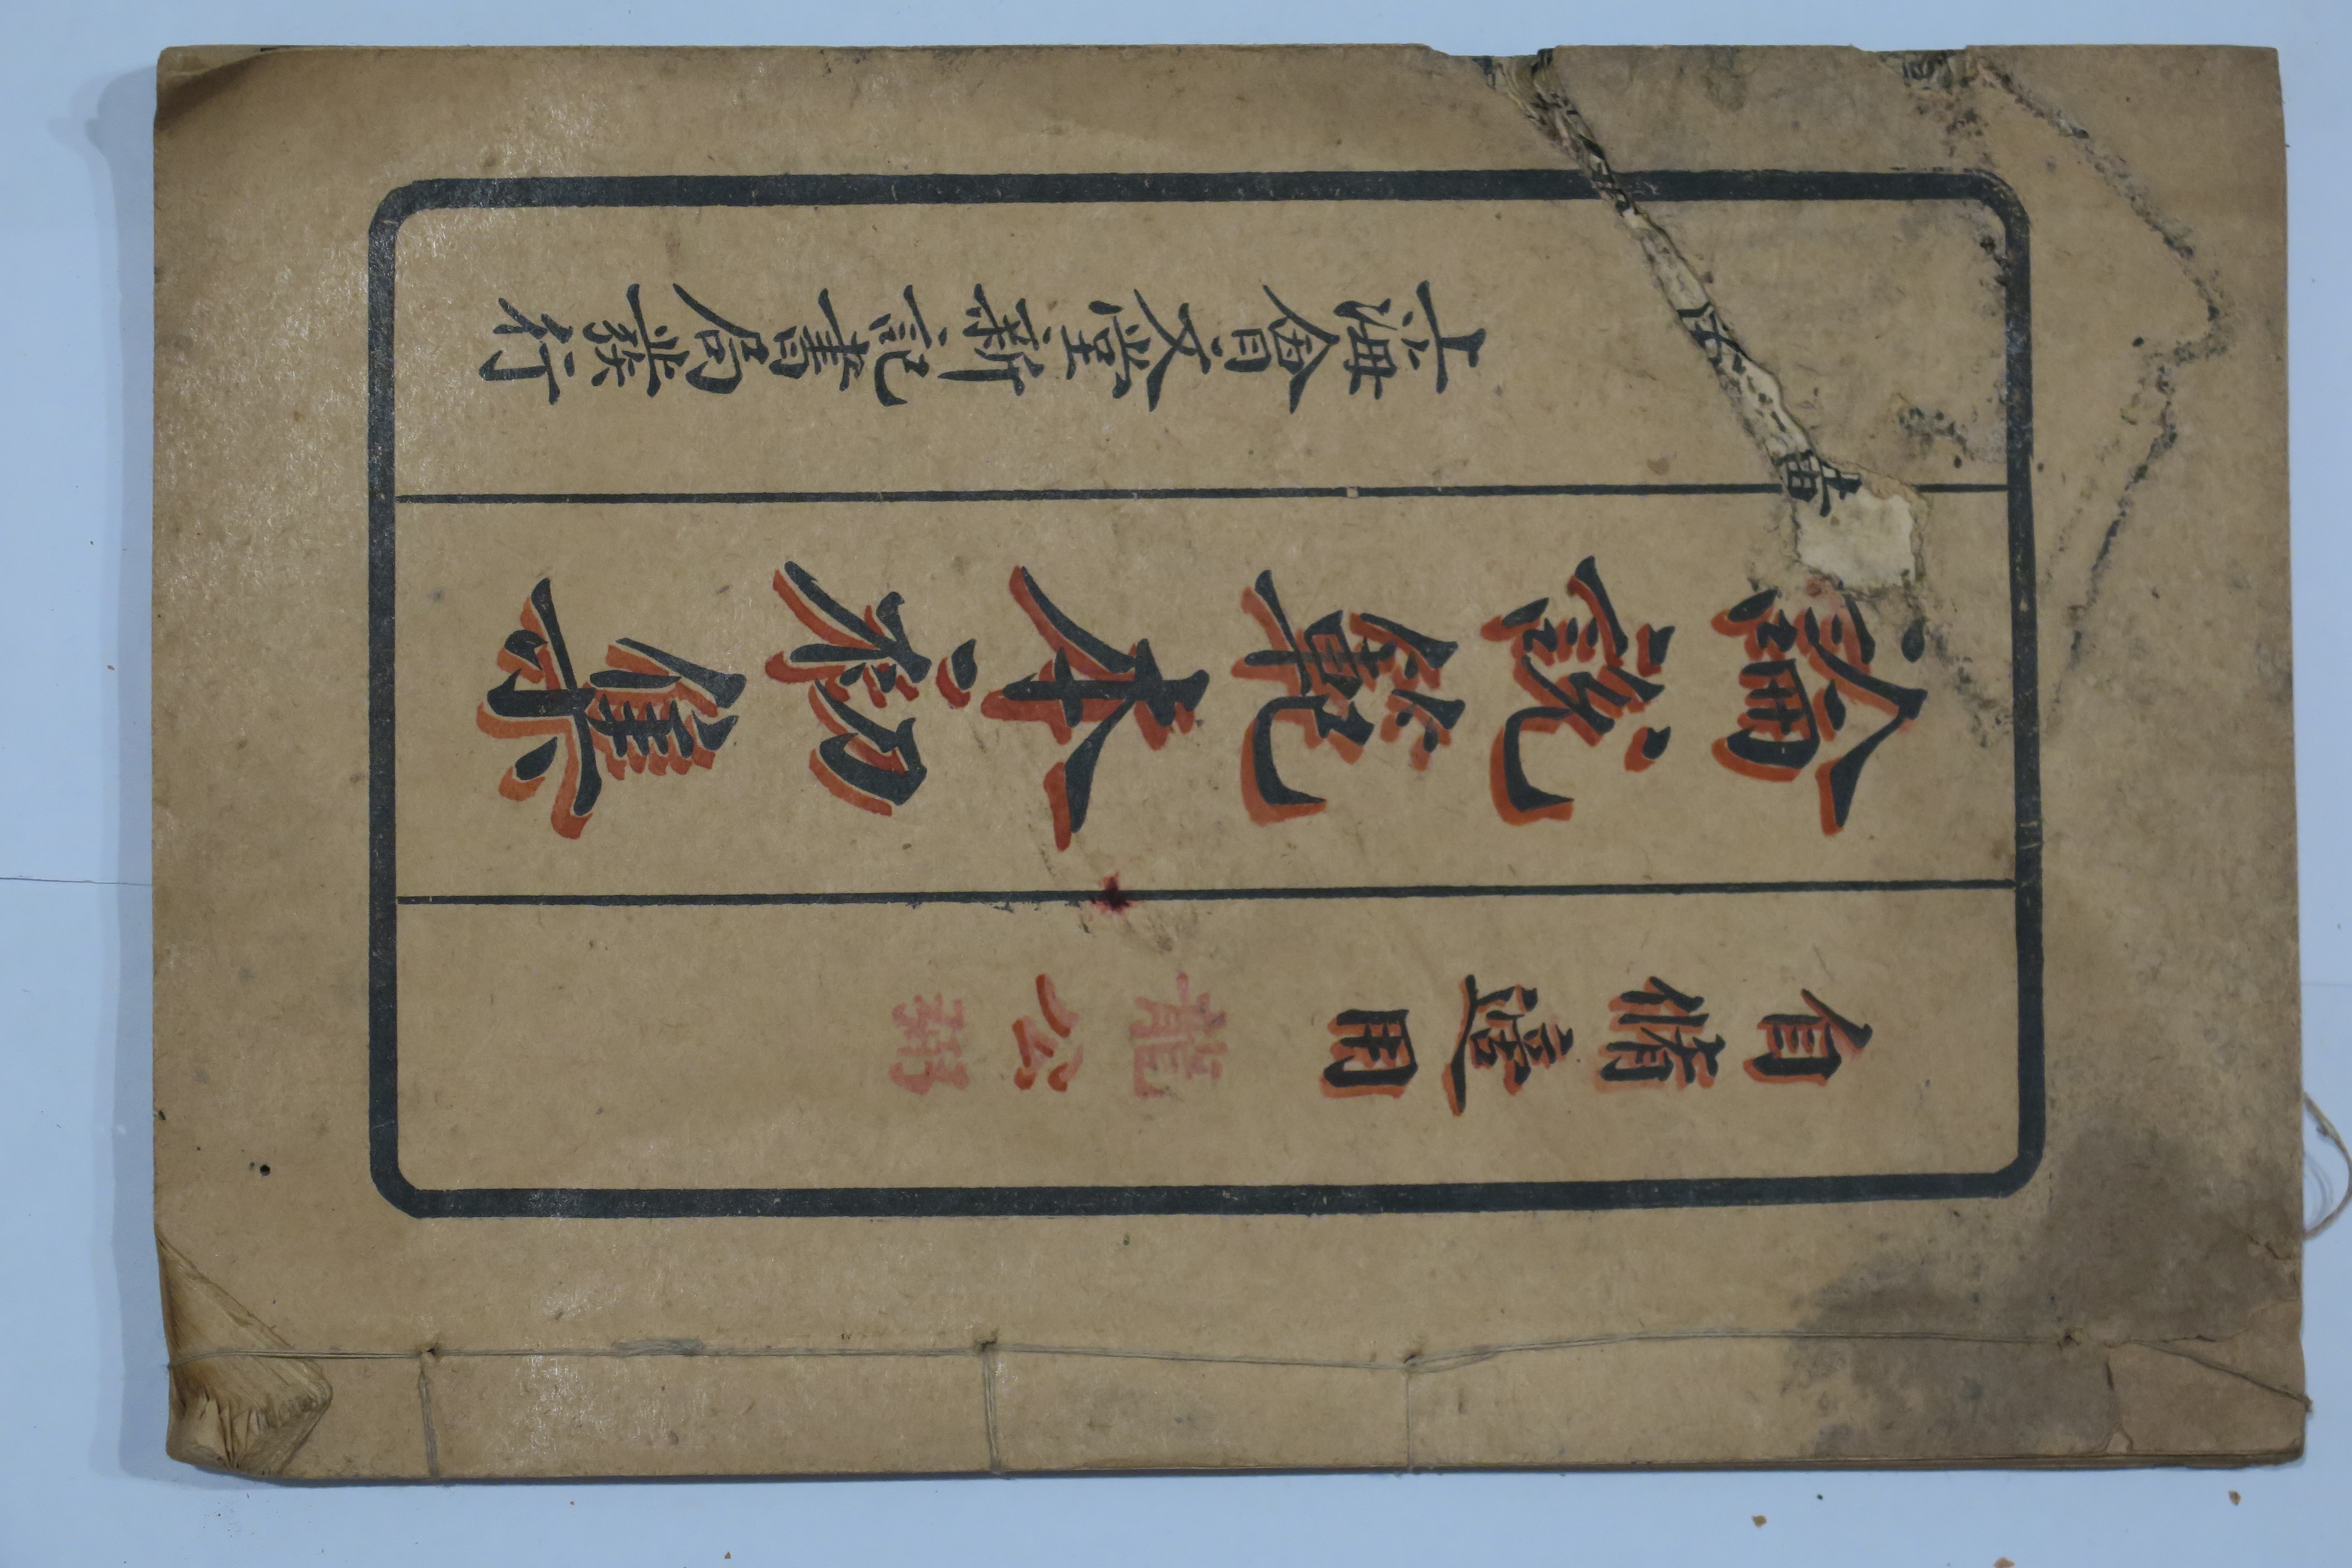 自脩適用
龍公
論說範本初集
上海會文堂新記書局發行